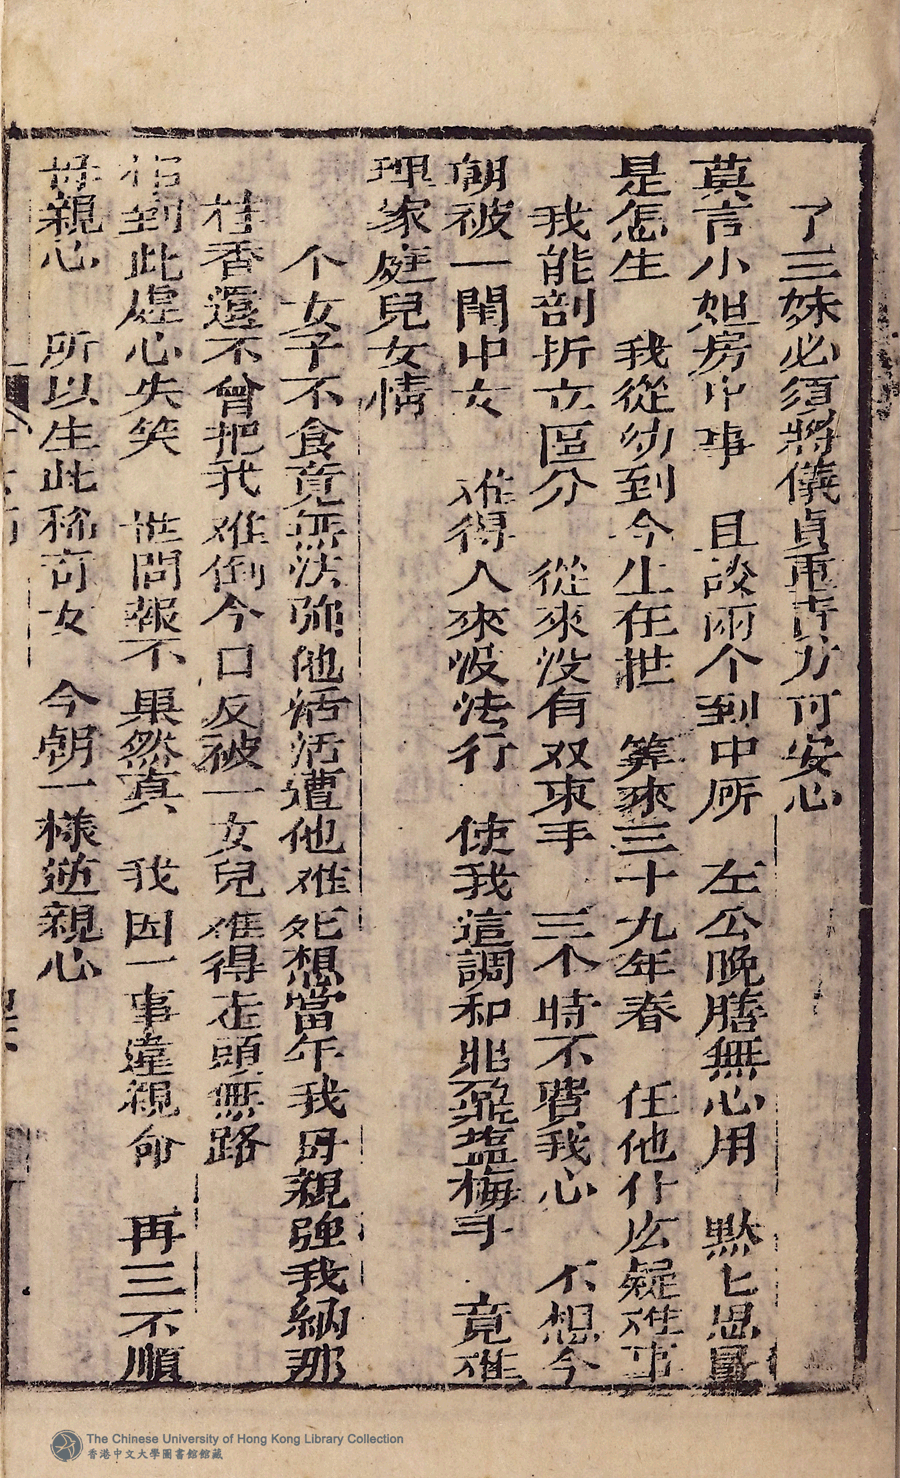 了三妹必須將儀貞重責方可安心
莫言小姐房中事　且說兩个到中所　左公晚膳無心用　黙匕思量
是怎生　我從幼到今生在世　筭來三十九年春　任他什么疑难事
我能剖折立區分　從來没有双束手　三个時不費我心　不想今
朝被一閨中女　难得人來没法行　使我這調和鼎鼐塩梅手　竟难
理家庭兒女情
个女子不食竟無法弥他活活遭他难死想當年我母親強我納那
桂香還不曾把我难倒今日反被一女兒难得走頭無路
相到此處心失笑　世間報不果然真　我因一事違親命　再三不順
母親心　所以生此稀奇女　今朝一様逆親心
The Chinese University of Hong Kong Library Collection
香港中文大學圖書館館藏